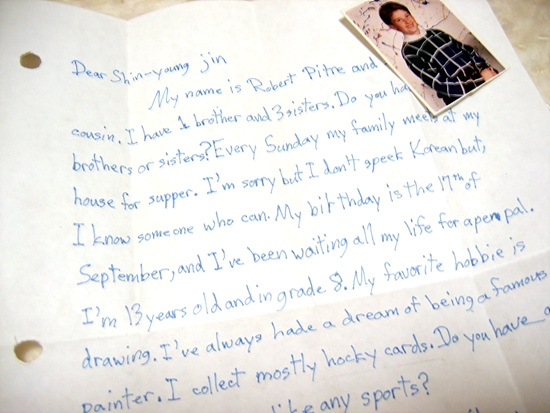 Dear Shin-young jin
My name is Robert Pitre and
cousin. I have 1 brother and 3 sisters. Do you ha
brothers or sisters? Every Sunday my family meets at my
house for supper. I'm sorry but I don't speek Korean but,
I know someone who can. My birthday is the 17th of
September, and I've been waiting all my life for a pen pal.
I'm 13 years old and in grade 8. My favorite hobbie is
drawing. I've always hade a dream of being a famous
painter. I collect mostly hocky cards. Do you have a
like any sports?